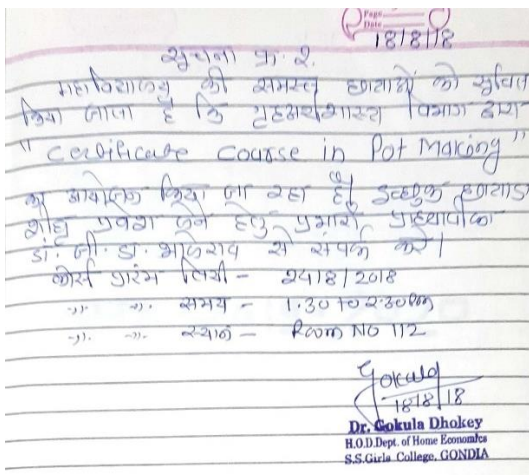 Page
Date
18/8/18
सूचना क्र. २.
महाविद्यालय की समस्त छात्राओं को सूचित
किया जाता है कि गृहअर्थशास्त्र विभाग द्वारा
"Certificate Course in Pot Making"
का आयोजन किया जा रहा है। इच्छुक छात्राए
शीघ्र प्रवेश लेने हेतु प्रभारी प्राध्यापिका
डॉ. जी. डा. भालेराव से संपर्क करे।
कोर्स प्रारंभ तिथी - 24/8/2018
-,,- -,,- समय - 1.30 to 2.30 pm
-,,- -,,- स्थान - Room No 112
18/8/18
Dr. Gokula Dhokey
H.O.D.Dept. of Home Economics
S.S.Girls College, GONDIA